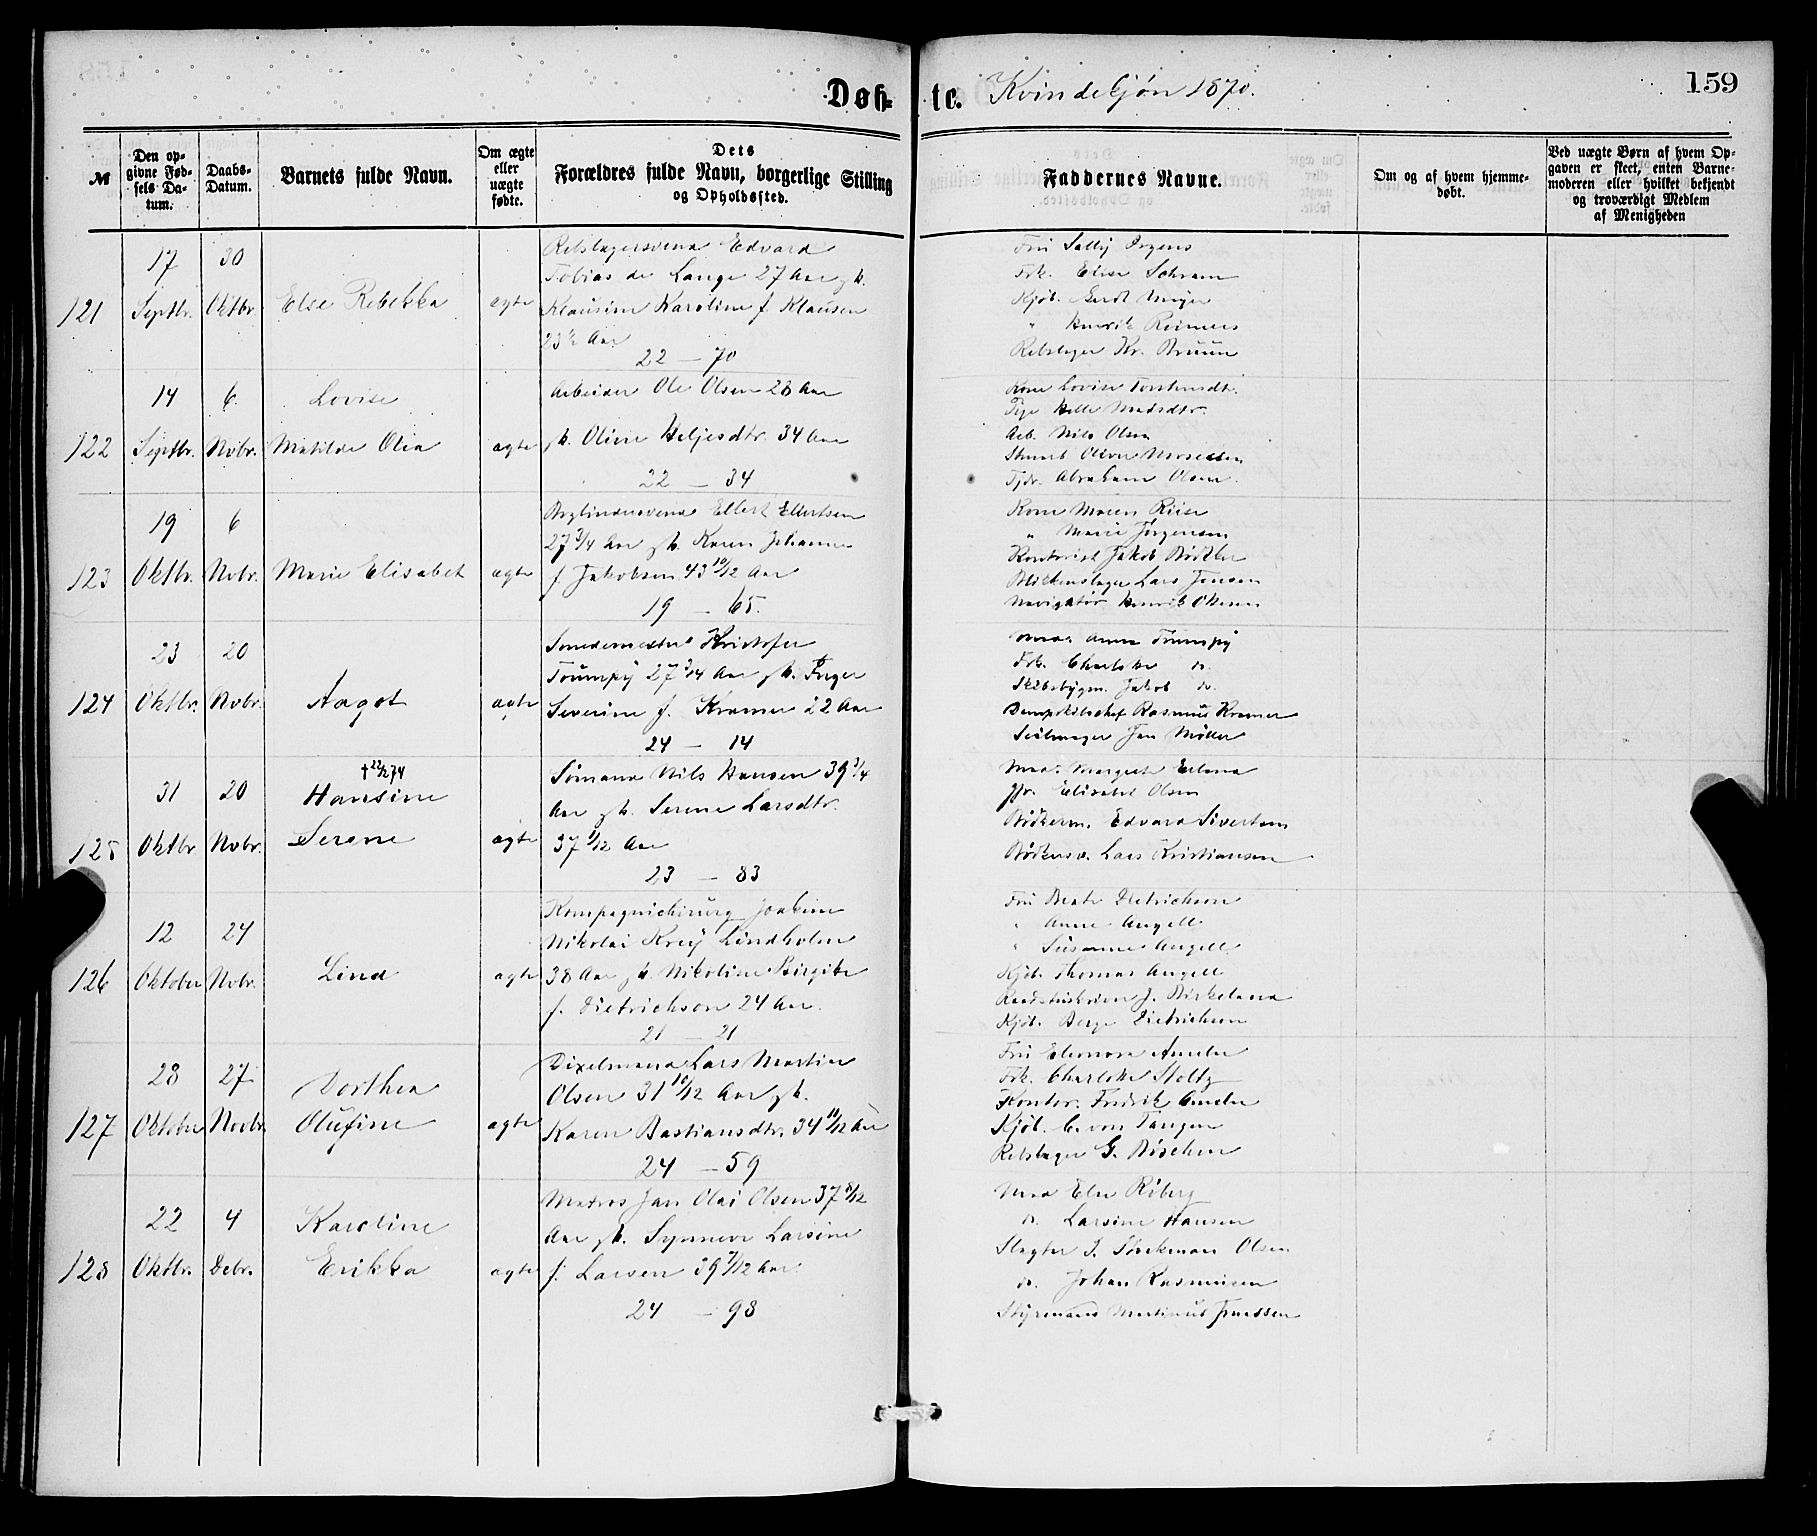 Døb- te. Kvindekjøn 1870. 159
№
Den opgivne Fødsels Datum.
Daabs-Datum.
Barnets fulde Navn.
Om ægte eller uægte fødte.
Dets Forældres fulde Navn, borgerlige Stilling og Opholdssted.
Faddernes Navne.
Om og af hvem hjemmedøbt.
Ved uægte Børn af hvem Opgaven er skeet, enten Barnemoderen eller hvilket bekjendt og troværdigt Medlem af Menigheden
121
17 Septbr.
30 Oktbr.
Else Rebekka
ægte
Rebslagersvend Edvard
Tobias de Lange 27 Aar gk.
Klausine Karoline f. Klausen
23½ Aar
22 — 70
Fru Sally
Frk. Elise Schram
Kjøb. Gerdt Meyer
" Henrik Reimers
Rebslager Kr. Bruun
122
14 Septbr.
6 Novbr.
Lovise
Matilde Olea
ægte
Arbeider Ole Olsen 28 Aar
gk. Oline Heljesdtr. 34 Aar
22 — 34
Kone Lovise
Pige Helle Madsdtr.
Arb. Nils Olsen
Oliver
Tjdr. Abraham Olsen.
123
19 Oktbr.
6 Novbr.
Marie Elisabet
ægte
Ellert Ellertsen
27 3/4 Aar gk. Karen Johanne
f. Jakobsen 43 10/12 Aar
19 — 65.
Kone Maren Riise
" Marie Jørgensen
Kontorist Jakob Bødtker
Blikkenslager Lars Jensen
Navigatør Henrik
124
23 Oktbr.
20 Novbr.
Aagot
ægte
Smedemester Kristofer
Trumpy 27 3/4 Aar gk. Inger
Severine f. Kramer 22 Aar
24 — 14
Mad. Anna Trumpy
Frk. Charlotte do.
Skibsbygm. Jakob do.
Rasmus Kramer
Seilmager Jan Møller
125
31 Oktbr.
20 Novbr.
† 22/2 74
Hansine
Serene
ægte
Sømand Nils Hansen 39 3/4
Aar gk. Serene Larsdtr.
37 1/12 Aar
23 — 83
Mad. Margrete
Jfr. Elisabet Olsen
Bødkerm. Edvard Sivertsen
Bødkersv. Lars Kristiansen
126
12 Oktober
24 Novbr.
Lina
ægte
Kompagnichirurg Joakim
Nikolai Krey Lindholm
38 Aar gk. Nikoline Birgite
f. Dietrichson 24 Aar.
21 — 21
Fru Beate Dietrichson
" Anne Angell
" Susanne Angell
Kjøb. Thomas Angell
Raadstuskriver J. Birkeland
Kjøb. Berge Dietrichson
127
28 Oktober
27 Novbr.
Dorthea
Olufine
ægte
Dixelmand Lars Martin
Olsen 31 10/12 Aar gk.
Karen Bastiansdtr. 34 11/12 Aar
24 — 59
Fru Eleonora Ameln
Frk. Charlotte Stoltz
Kontor. Fredrik Ameln
Kjøb. C. von Tangen
Rebslager G. Bøschen
128
22 Oktbr.
4 Debr.
Karoline
Erikka
ægte
Matros Jan Olai Olsen 37 8/12
Aar gk. Synneve Larsine
f. Larsen 39 7/12 Aar.
24 — 98
Mad Else Riberg
do. Larsine Hansen
Slagter J. Olsen
do. Johan Rasmussen
Styrmand Martinus